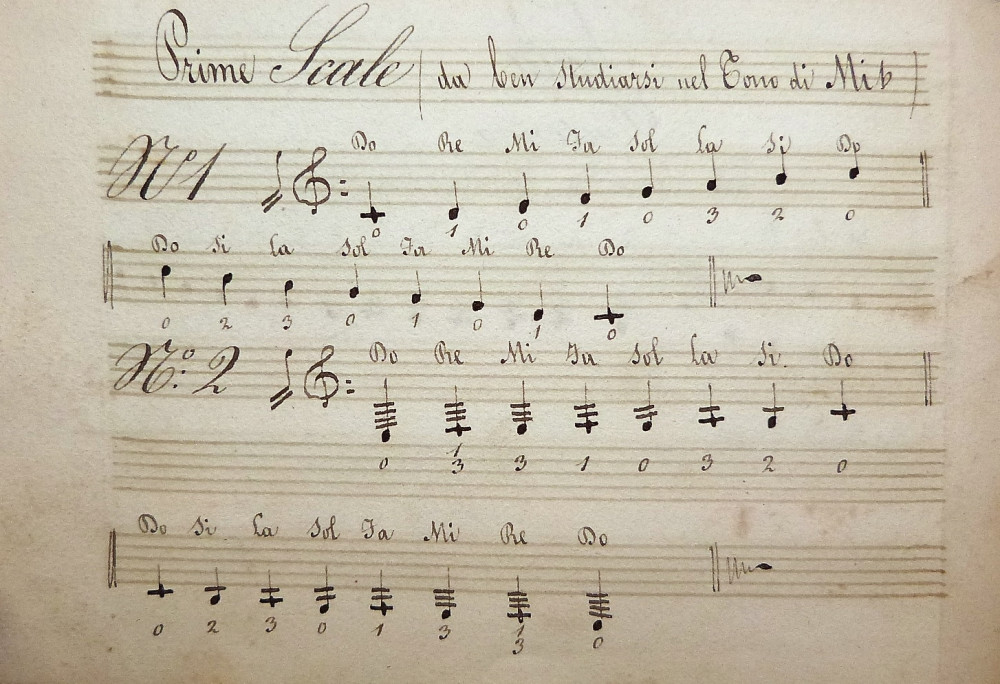 Prime Scale (da ben studiarsi nel Tono di Mib)
Nº 1 Do Re Mi Fa Sol La Si Do
0 1 0 1 0 3 2 0
Do Si La Sol Fa Mi Re Do
0 2 3 0 1 0 1 0
Nº: 2 Do Re Mi Fa Sol La Si. Do
0 1 3 3 1 0 3 2 0
Do Si La Sol Fa Mi Re Do
0 2 3 0 1 3 1 3 0